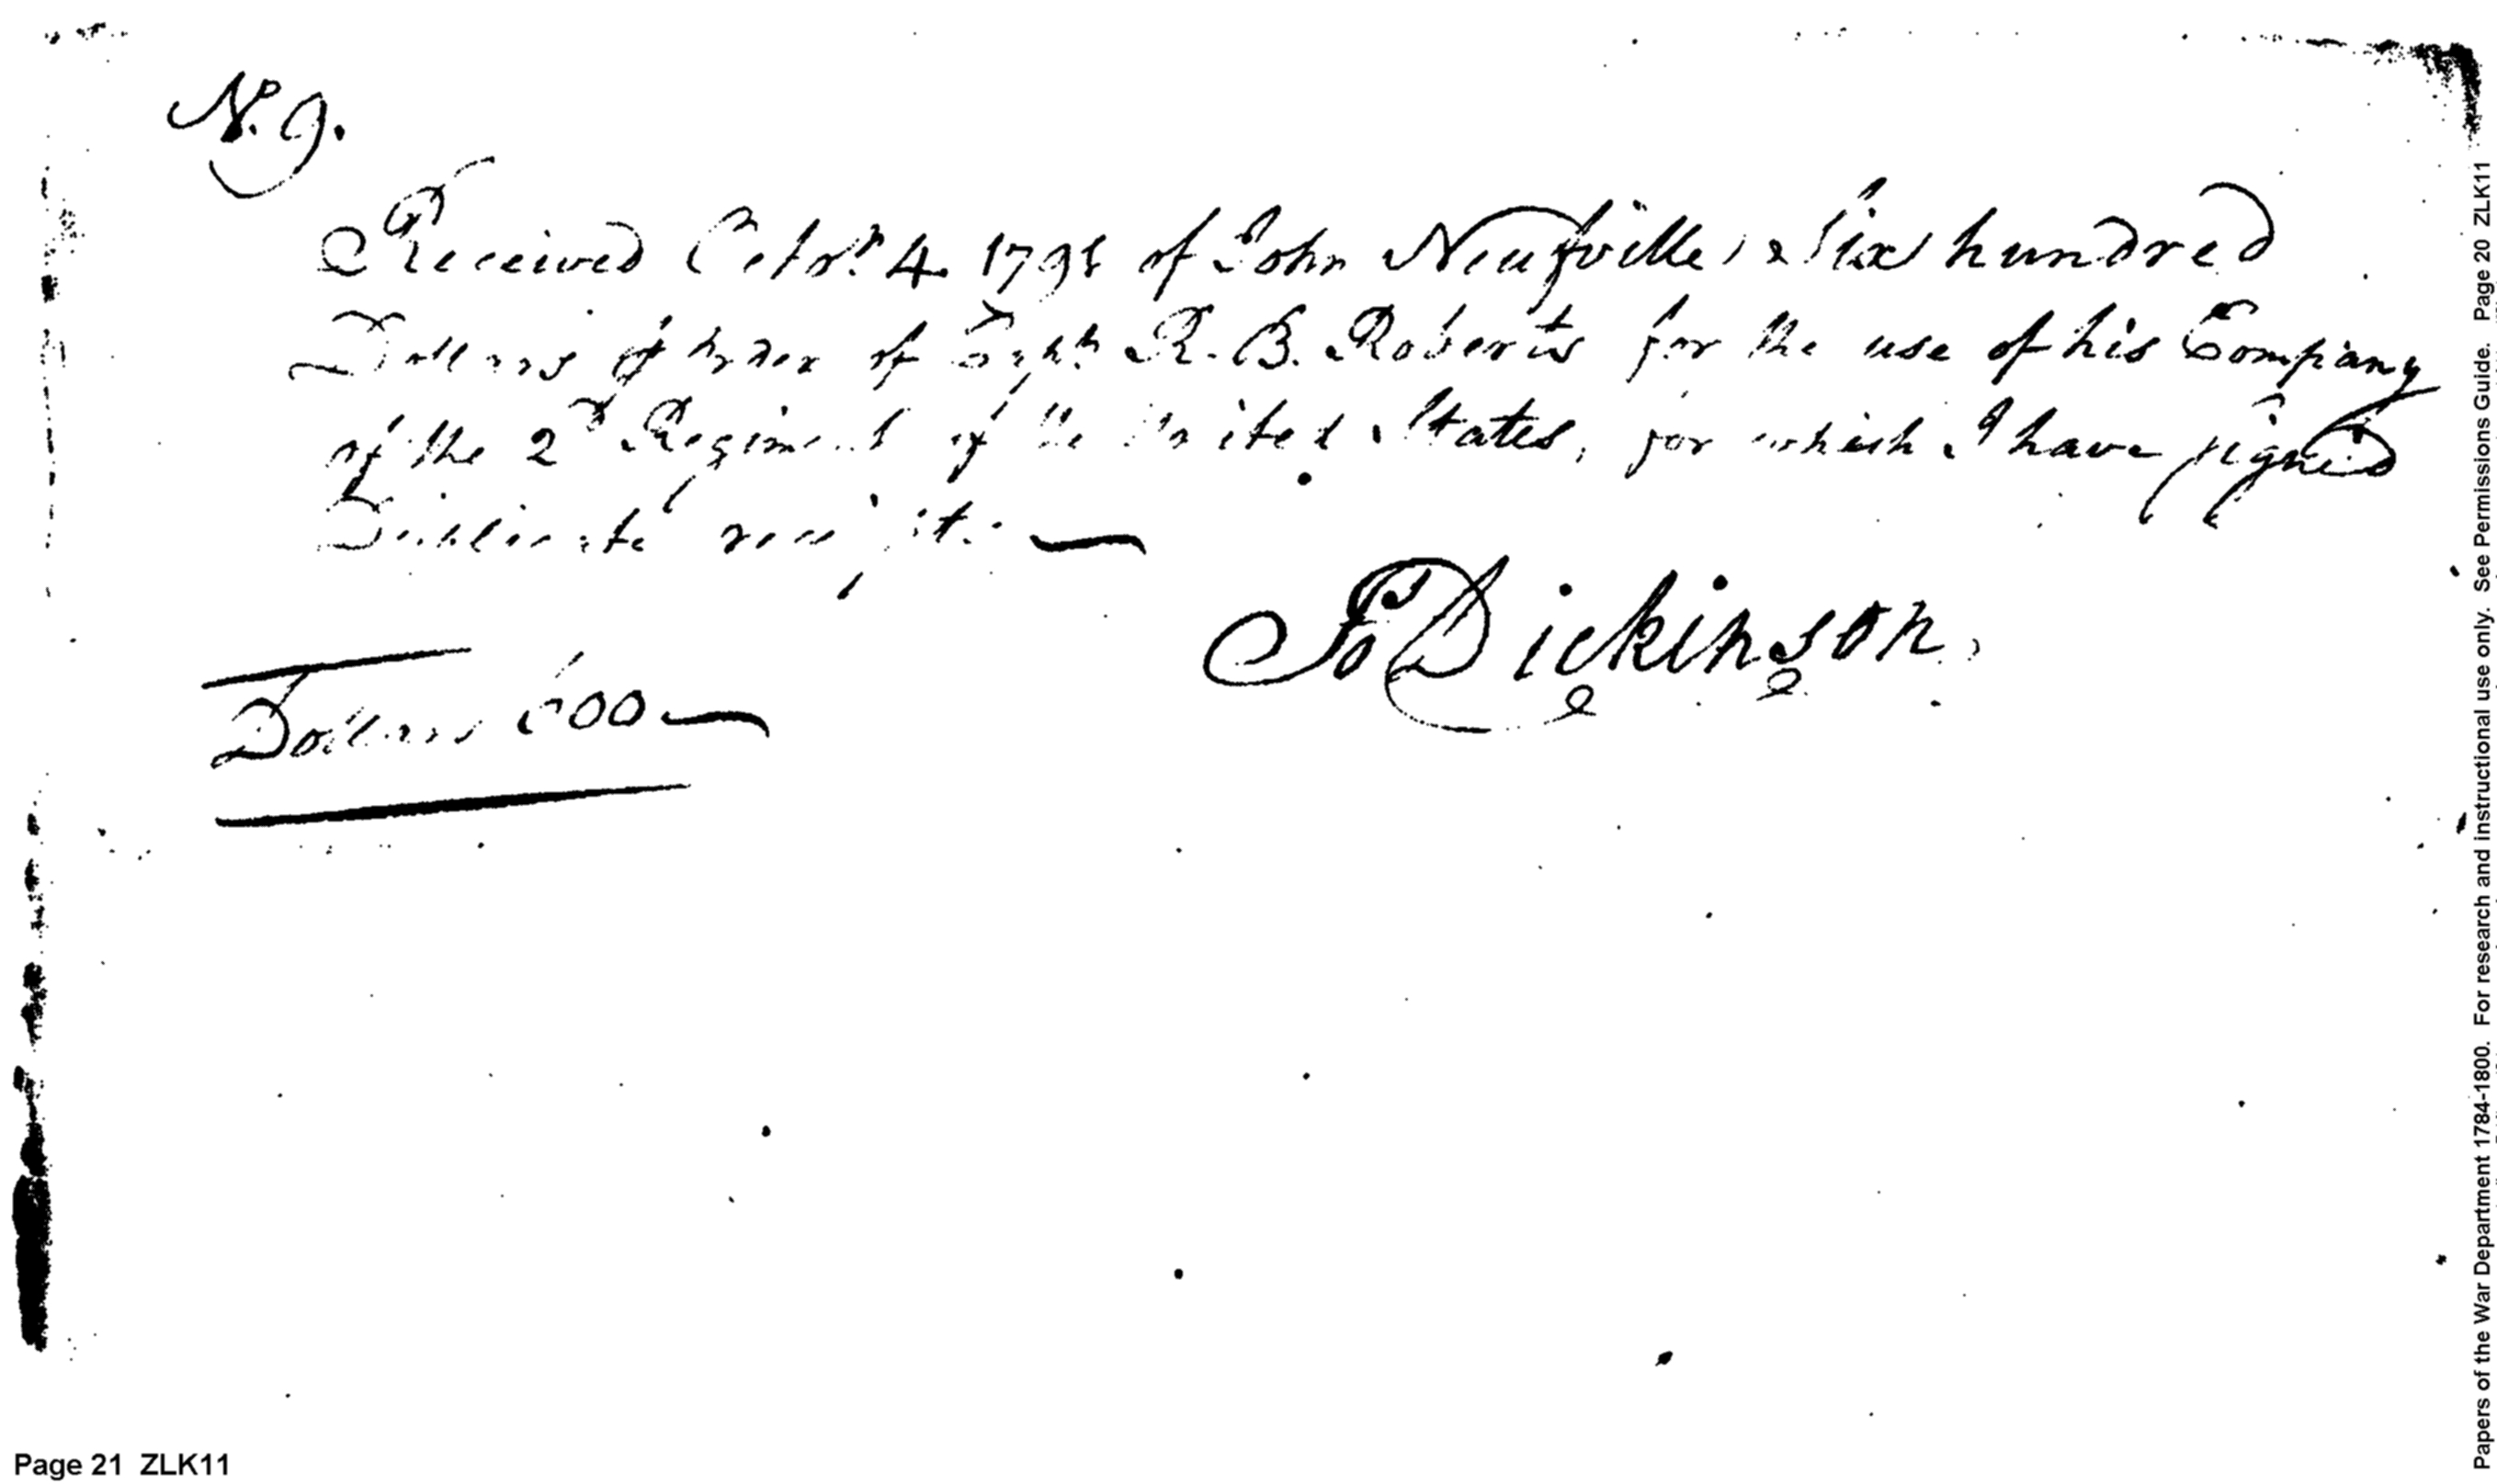 No. 9.
Received Octobr. 4. 1791 of John Neufville, Six hundred
Dollars by order of Capt. R. B. Roberts for the use of his Company
of the 2d Regiment of the United States, for which I have signed
Duplicate receipts
Jo Dickinson
Dollars 600
Page 21 ZLK11
Papers of the War Department 1784-1800. For research and instructional use only. See Permissions Guide. Page 20 ZLK11